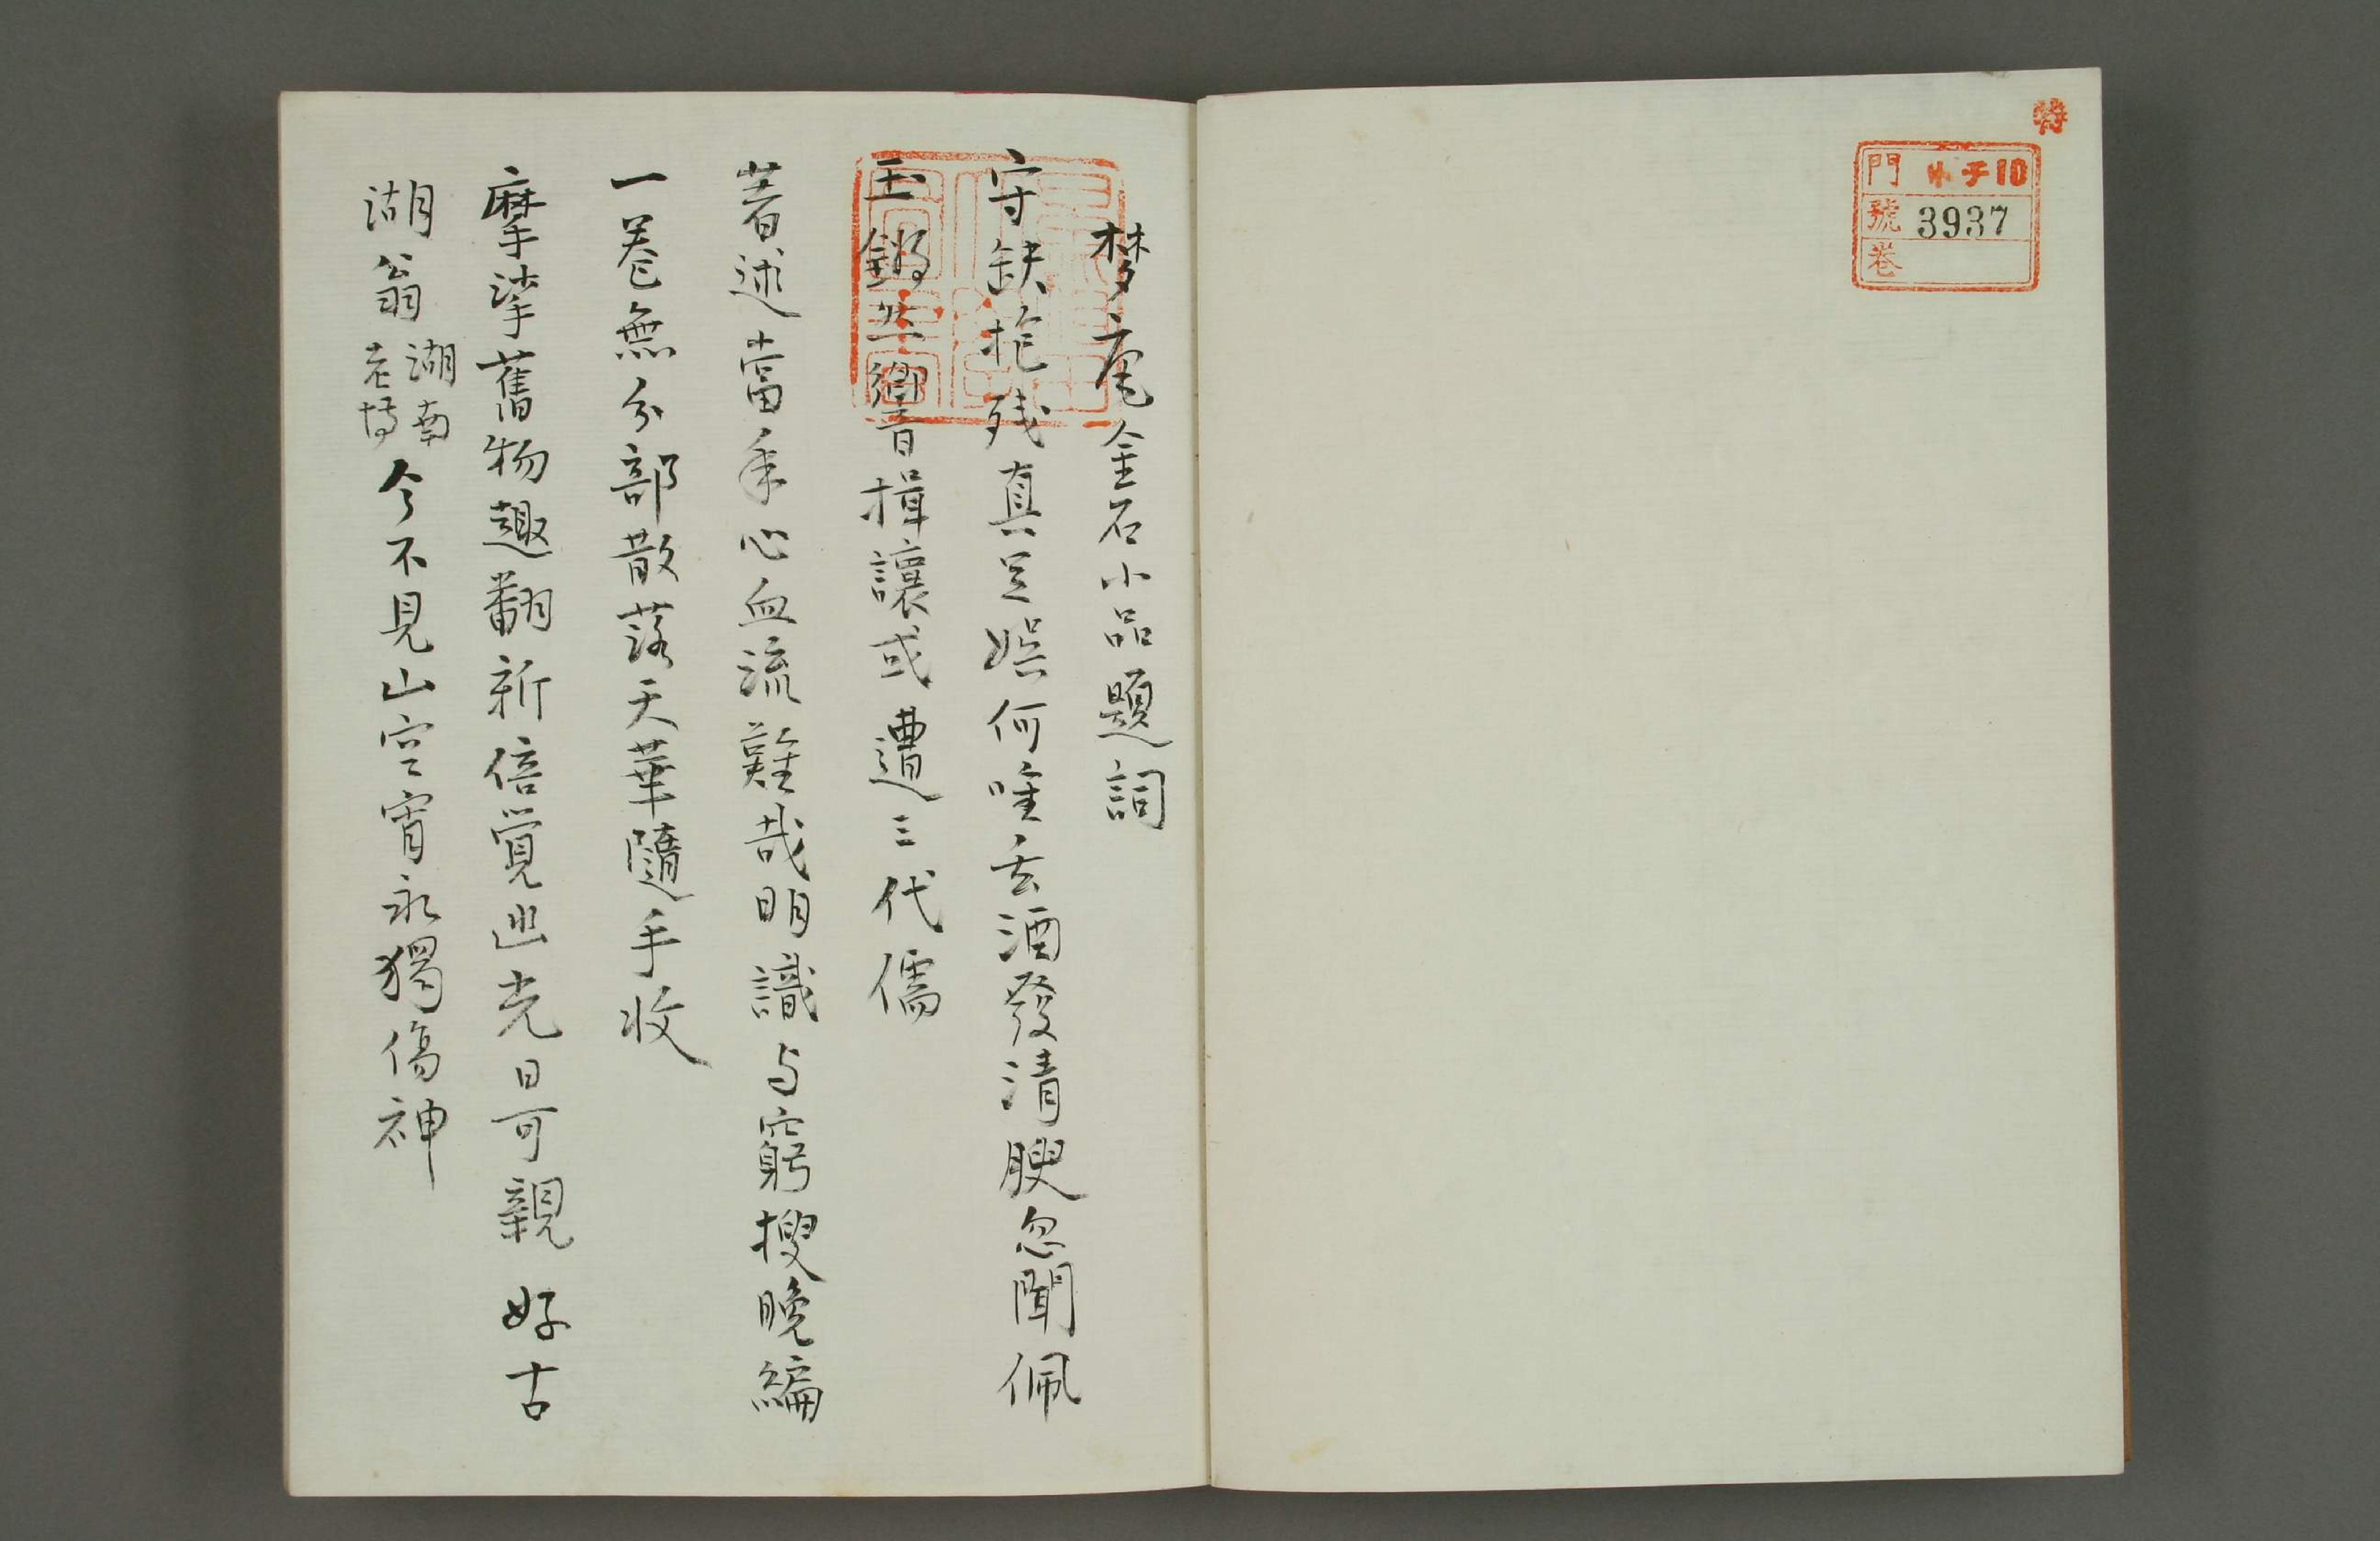 特
門 小子10
號 3937
卷
梦庵金石小品題詞
守缺抱残真足娯何唯去酒發清腴忽聞佩
玉鏘然響揖讓或遭三代儒
著述當年心血流難哉明識与窮搜晚編
一卷無分部散落天華隨手收
摩挲舊物趣翻新倍覚幽光日可親好古
湖翁湖南老博今不見山空宵永獨傷神